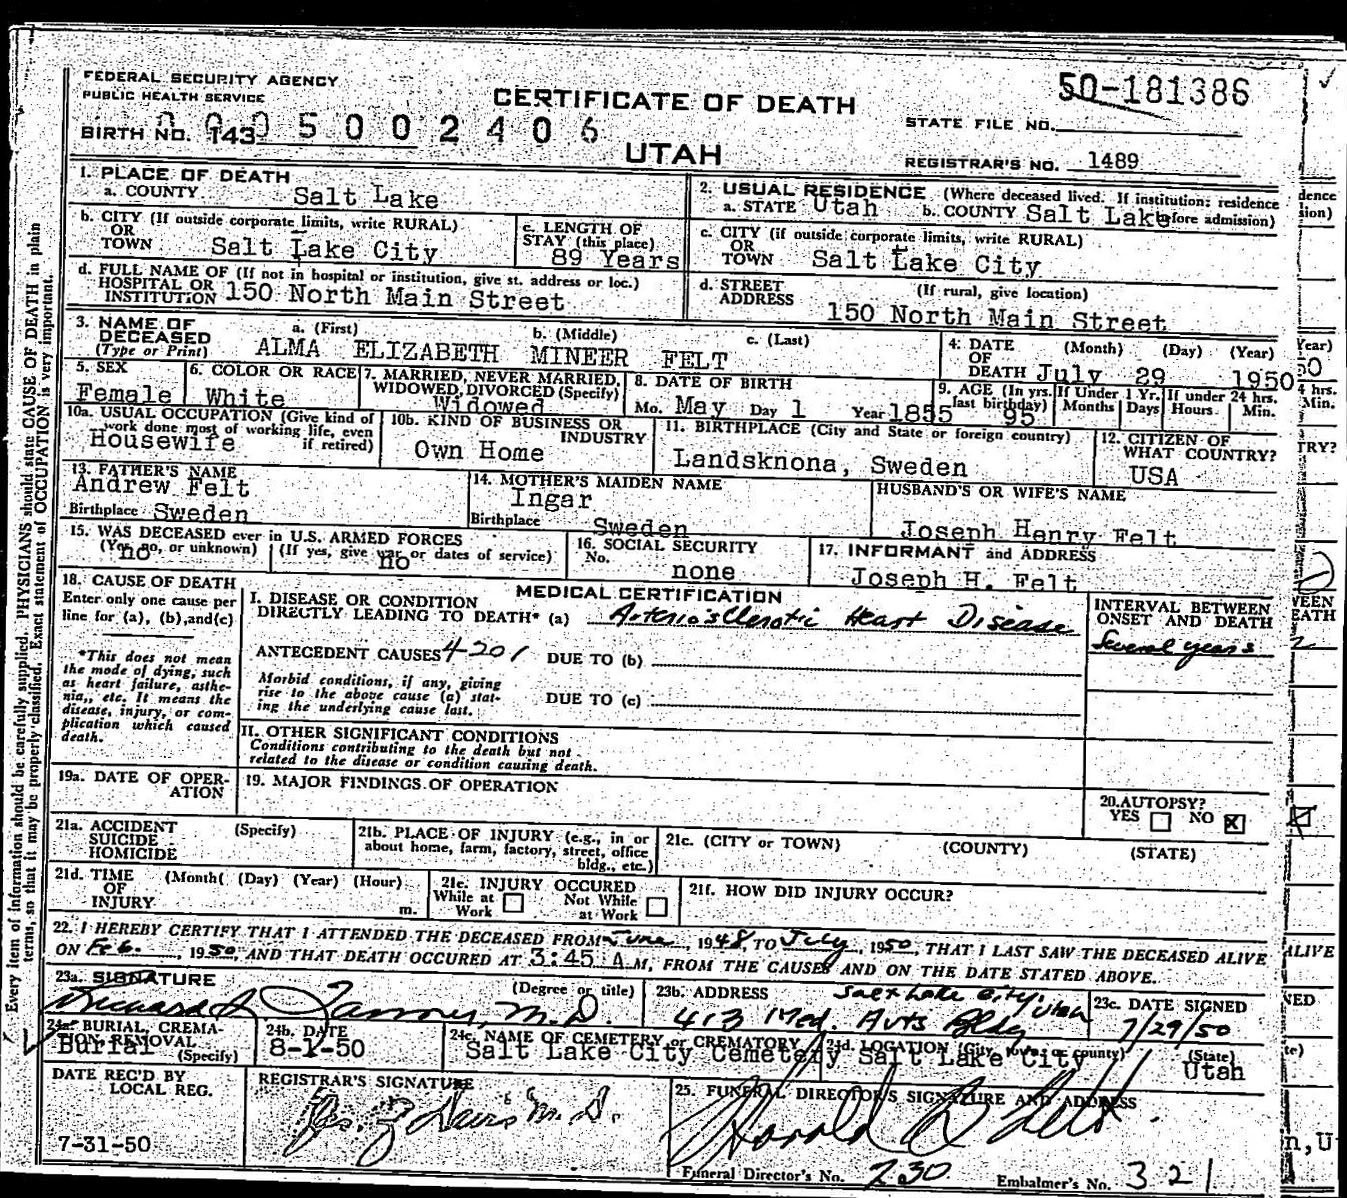 FEDERAL SECURITY AGENCY
PUBLIC HEALTH SERVICE
CERTIFICATE OF DEATH
50-181386
STATE FILE NO.
BIRTH NO. 143
0005002406
UTAH
REGISTRAR'S NO. 1489
1. PLACE OF DEATH
a. COUNTY Salt Lake
2. USUAL RESIDENCE (Where deceased lived. If institution: residence before admission)
a. STATE Utah b. COUNTY Salt Lake
b. CITY (If outside corporate limits, write RURAL)
OR
TOWN Salt Lake City
c. LENGTH OF
STAY (this place)
89 Years
c. CITY (if outside corporate limits, write RURAL)
OR
TOWN Salt Lake City
d. FULL NAME OF (If not in hospital or institution, give st. address or loc.)
HOSPITAL OR
INSTITUTION 150 North Main Street
d. STREET
ADDRESS
(If rural, give location)
150 North Main Street
3. NAME OF
DECEASED
(Type or Print)
a. (First) b. (Middle) c. (Last)
ALMA ELIZABETH MINEER FELT
4. DATE (Month) (Day) (Year)
OF
DEATH July 29 1950
5. SEX
Female
6. COLOR OR RACE
White
7. MARRIED, NEVER MARRIED,
WIDOWED, DIVORCED (Specify)
Widowed
8. DATE OF BIRTH
Mo. May Day 1 Year 1855
9. AGE (In yrs. last birthday)
95
If Under 1 Yr.
Months Days
If under 24 hrs.
Hours Min.
10a. USUAL OCCUPATION (Give kind of
work done most of working life, even
if retired)
Housewife
10b. KIND OF BUSINESS OR
INDUSTRY
Own Home
11. BIRTHPLACE (City and State or foreign country)
Landsknona, Sweden
12. CITIZEN OF
WHAT COUNTRY?
USA
13. FATHER'S NAME
Andrew Felt
Birthplace Sweden
14. MOTHER'S MAIDEN NAME
Ingar
Birthplace Sweden
HUSBAND'S OR WIFE'S NAME
Joseph Henry Felt
15. WAS DECEASED ever in U.S. ARMED FORCES
(Yes, no, or unknown) (If yes, give war or dates of service)
no no
16. SOCIAL SECURITY
No.
none
17. INFORMANT and ADDRESS
Joseph H. Felt
18. CAUSE OF DEATH
Enter only one cause per
line for (a), (b), and (c)
*This does not mean
the mode of dying, such
as heart failure, asthe-
nia, etc. It means the
disease, injury, or com-
plication which caused
death.
MEDICAL CERTIFICATION
I. DISEASE OR CONDITION
DIRECTLY LEADING TO DEATH* (a) Arteriosclerotic Heart Disease
INTERVAL BETWEEN
ONSET AND DEATH
Several years
ANTECEDENT CAUSES 4201 DUE TO (b)
Morbid conditions, if any, giving
rise to the above cause (a) stat-
ing the underlying cause last.
DUE TO (c)
II. OTHER SIGNIFICANT CONDITIONS
Conditions contributing to the death but not
related to the disease or condition causing death.
19a. DATE OF OPER-
ATION
19. MAJOR FINDINGS OF OPERATION
20. AUTOPSY?
YES NO X
21a. ACCIDENT (Specify)
SUICIDE
HOMICIDE
21b. PLACE OF INJURY (e.g., in or
about home, farm, factory, street, office
bldg., etc.)
21c. (CITY or TOWN) (COUNTY) (STATE)
21d. TIME (Month( (Day) (Year) (Hour)
OF
INJURY m.
21e. INJURY OCCURED
While at Work
Not While at Work
21f. HOW DID INJURY OCCUR?
22. I HEREBY CERTIFY THAT I ATTENDED THE DECEASED FROM June, 1948, TO July, 1950, THAT I LAST SAW THE DECEASED ALIVE
ON Feb., 1950, AND THAT DEATH OCCURED AT 3:45 A M, FROM THE CAUSES AND ON THE DATE STATED ABOVE.
23a. SIGNATURE (Degree or title)
M.D.
23b. ADDRESS Salt Lake City, Utah
413 Med. Arts Bldg
23c. DATE SIGNED
7/29/50
24a. BURIAL, CREMA-
TION, REMOVAL
(Specify)
Burial
24b. DATE
8-1-50
24c. NAME OF CEMETERY or CREMATORY
Salt Lake City Cemetery
24d. LOCATION (City, town, or county) (State)
Salt Lake City Utah
DATE REC'D BY
LOCAL REG.
7-31-50
REGISTRAR'S SIGNATURE
M.D.
25. FUNERAL DIRECTOR'S SIGNATURE AND ADDRESS
Harold B Felt
Funeral Director's No. 230 Embalmer's No. 321
Every item of information should be carefully supplied. PHYSICIANS should state CAUSE OF DEATH in plain
terms, so that it may be properly classified. Exact statement of OCCUPATION is very important.